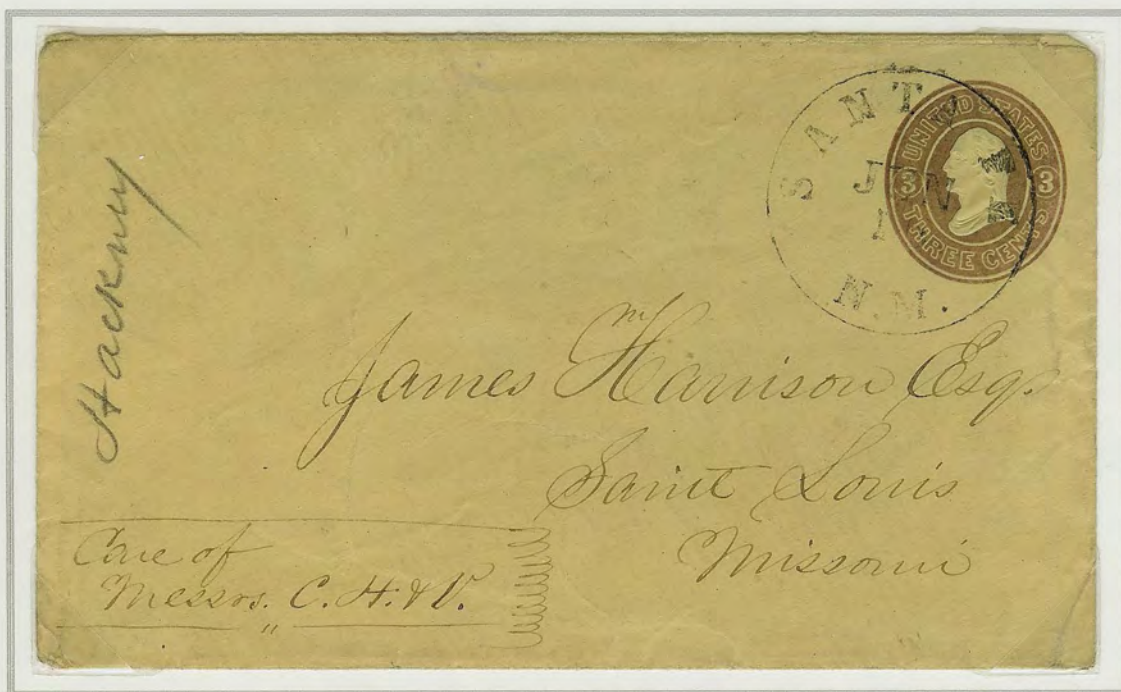 SANTA
JUN
1
N.M.
UNITED STATES
3 3
THREE CENTS
Hackney
James Harrison Esq.
Saint Louis
Missouri
Care of
Messrs. C. H. & V.